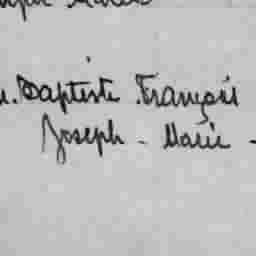 . Baptiste François
Joseph - Marie -